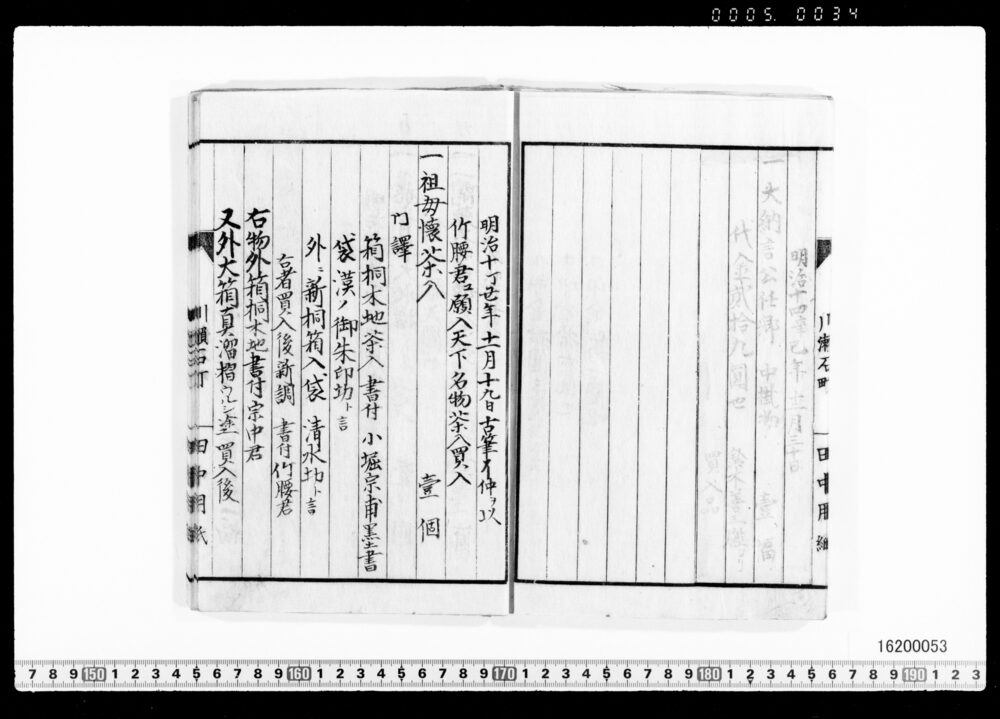 0005. 0034
一 大納言公任卿 中掛物 壹幅
明治十丁丑年十一月十九日古筆了仲ヲ以
竹腰君エ願入天下名物茶入買入
一 祖母懐茶入 壹個
内譯
箱桐木地茶入 書付 小堀宗甫墨書
袋漢ノ御朱印切ト言
外ニ新桐箱入袋 清水切ト言
右者買入後新調 書付竹腰君
右物外箱桐木地書付宗中君
又外大箱真溜摺ウルシ塗買入後
川瀬石町 田中用紙
川瀬石町 田中用紙
16200053
7 8 9 150 1 2 3 4 5 6 7 8 9 160 1 2 3 4 5 6 7 8 9 170 1 2 3 4 5 6 7 8 9 180 1 2 3 4 5 6 7 8 9 190 1 2 3